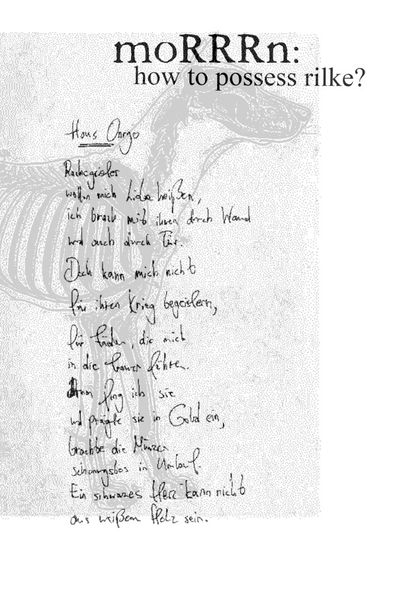 moRRRn:
how to possess rilke?
Rachegeister
wollen mich Liebe heißen,
ich brach mit ihnen durch Wand
und auch durch Tür.
Doch kann mich nicht
für ihren Krieg begeistern,
für die mich
in die führen.
Dann fing ich sie
und prägte sie in Gold ein,
brachte die Münzen
schonungslos in Umlauf.
Ein schwarzes Herz kann nicht
aus weißem Holz sein.